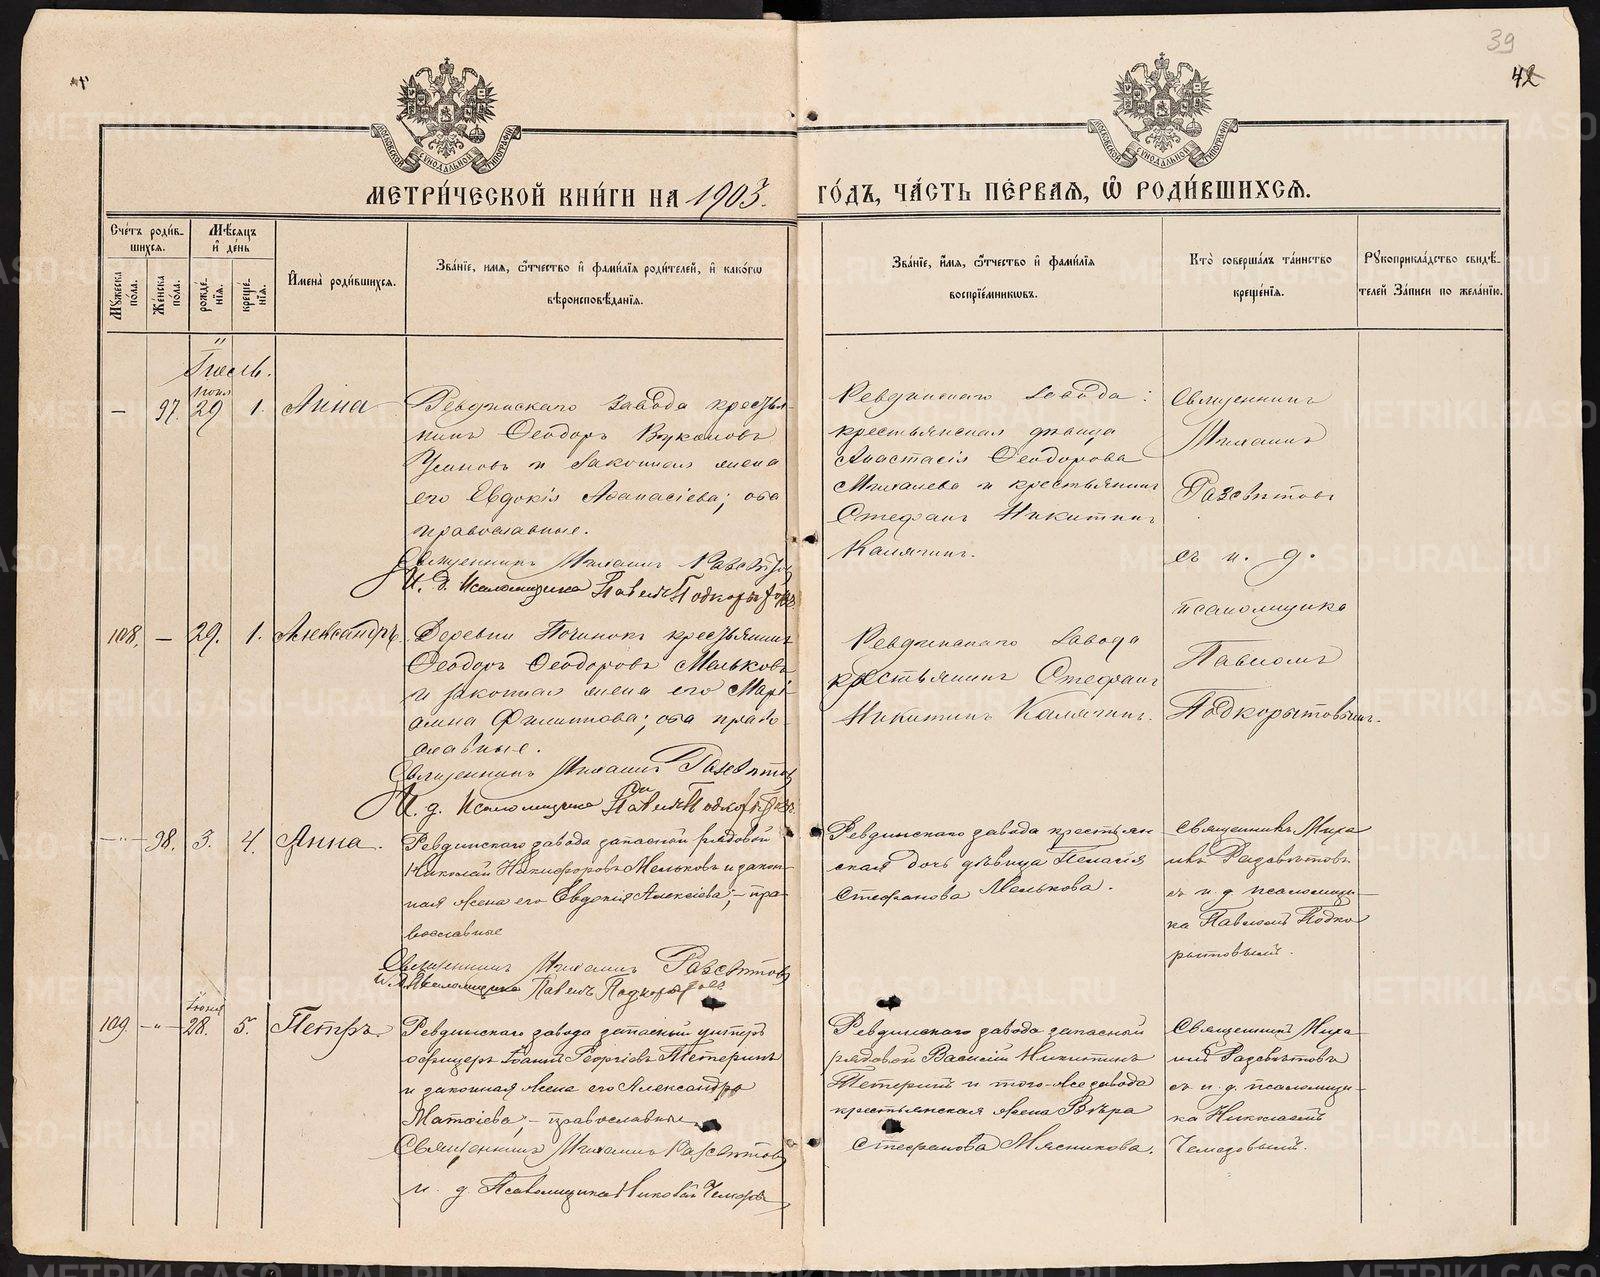 39
42
МОСКОВСКОЙ СѴНОДАЛЬНОЙ ТИПОГРАФІИ
МОСКОВСКОЙ СѴНОДАЛЬНОЙ ТИПОГРАФІИ
МЕТРИ́ЧЕСКОЙ КНИ́ГИ НА 1903. ГО́ДЪ, ЧА́СТЬ ПЕ́РВАЯ, Ѡ РОДИ́ВШИХСЯ.
Сче́тъ роди́в-
шихся.
Мѣсяцъ
и де́нь
Мꙋжеска пола.
Же́нска по́ла.
рожде́-нїя.
креще́-нїя.
И҆мена̀ роди́вшихся.
Зва́нїе, имя, ѻ҆тчество и҆ фами́лїя роди́телей, и҆ како́гѡ
вѣроисповѣ́данїя.
Зва́нїе, и҆́мя, ѻ҆́тчество и҆ фами́лїя
воспрїе́мникѡвъ.
Кто̀ соверша́лъ та́инство
креще́нїя.
Рꙋкоприкла́дство свидѣ́-
телей За́писи по жела́нїю.
Іюль.
— 97. іюня 29 1. Анна
Ревдинскаго завода крестья-
нинъ Ѳеодоръ
и законная жена
его Евдокія Аѳанасіева; оба
православные.
Священникъ Михаилъ Разсвѣтовъ
И. д. Псаломщика Павелъ Подкорытовъ
Ревдинскаго завода:
крестьянская дѣвица
Анастасія Ѳеодорова
Михалева и крестьянинъ
Стефанъ Никитинъ
Калягинъ.
Священникъ
Михаилъ
Разсвѣтовъ
съ и. д.
псаломщика
Павломъ
Подкорытовымъ.
108. — 29. 1. Александръ.
Деревни Починокъ крестьянинъ
Ѳеодоръ Ѳеодоровъ Мельковъ
и законная жена его Марі-
анна Филиппова; оба право-
славные.
Священникъ Михаилъ Разсвѣтовъ
И. д. Псаломщика Павелъ Подкорытовъ
Ревдинскаго завода
крестьянинъ Стефанъ
Никитинъ Калягинъ.
— 98. 3. 4. Анна.
Ревдинскаго завода запасной рядовой
Николай Никифоровъ Мельковъ и закон-
ная жена его Евдокія Алексіева; — пра-
вославные
Священникъ Михаилъ Разсвѣтовъ
и. д. Псаломщика Павелъ Подкорытовъ
Ревдинскаго завода крестьян
ская дочь дѣвица Пелагія
Стефанова Мелькова.
Священникъ Миха
илъ Разсвѣтовъ
съ и. д. псаломщи-
ка Павломъ Подко
рытовымъ.
109. — " — Іюня 28. 5. Петръ.
Ревдинскаго завода запасный унтеръ
офицеръ Іоаннъ Георгіевъ Тетеринъ
и законная жена его Александра
Матѳіева, — православные
Священникъ Михаилъ Разсвѣтовъ
и. д. Псаломщика Николай Чемезовъ
Ревдинскаго завода запасный
рядовой Василій Никитинъ
Тетеринъ и того-же завода
крестьянская жена Вѣра
Стефанова Мясникова.
Священникъ Миха
илъ Разсвѣтовъ
съ и. д. псаломщи-
ка Николаемъ
Чемезовымъ.
METRIKI.GASO-URAL.RU